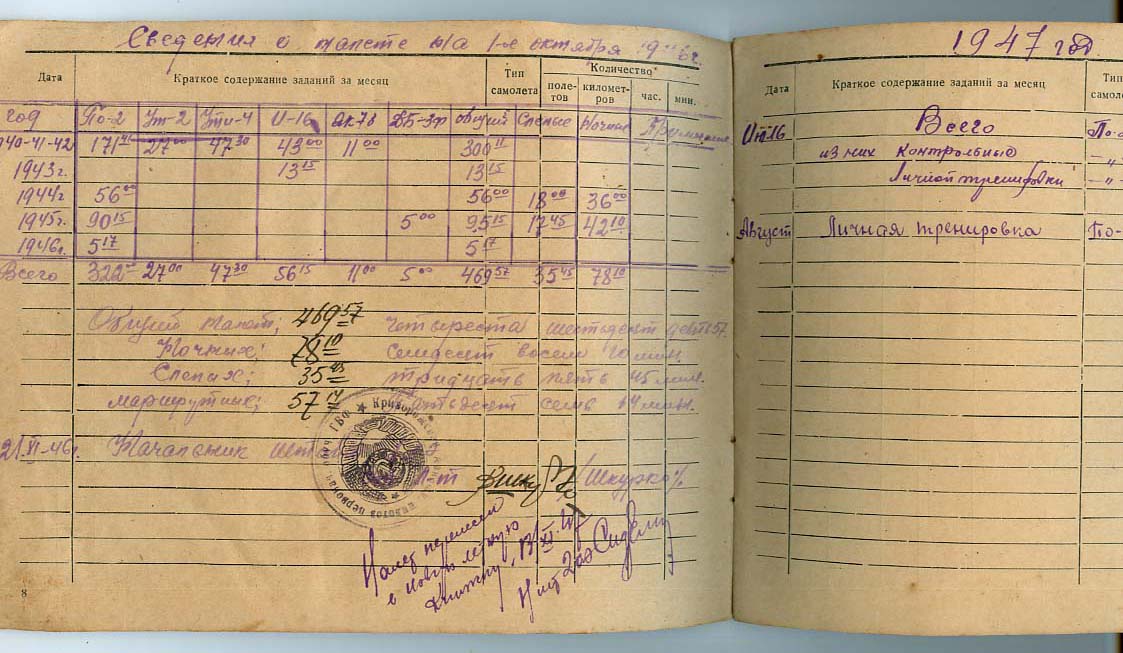 Сведения о налете на 1-е октября 1946г.
Дата Краткое содержание заданий за месяц Тип самолета Количество
полетов километров час. мин.
год По-2 Ут-2 Ути-4 И-16 ДБ-3ф общий Слепые Ночные
940-41-42 171 27 00 47 30 43 00 11 00 300 11
1943г. 13 15 13 15
1944г 56 00 56 00 18 00 36 00
1945г. 90 15 5 00 95 15 17 45 42 10
1946г. 5 17 5 17
Всего 322 27 00 47 30 56 15 11 00 5 00 469 57 35 45 78 10
Общий налет; 469 57 четыреста шестьдесят девять 57.
Ночных; 78 10 семьдесят восемь 10 мин.
Слепых; 35 45 тридцать пять 45 мин.
маршрутных; 57 14 пятьдесят семь 14 мин.
21.XI-46г. Начальник шта
л-т /Шкурко/
Налет перенесен
в новую летную
книжку. 13/XI.47
8
1947 год
Дата Краткое содержание заданий за месяц Тип самоле
Всего По-
из них контрольные -„-
Личной тренировки -„-
Август Личная тренировка По-